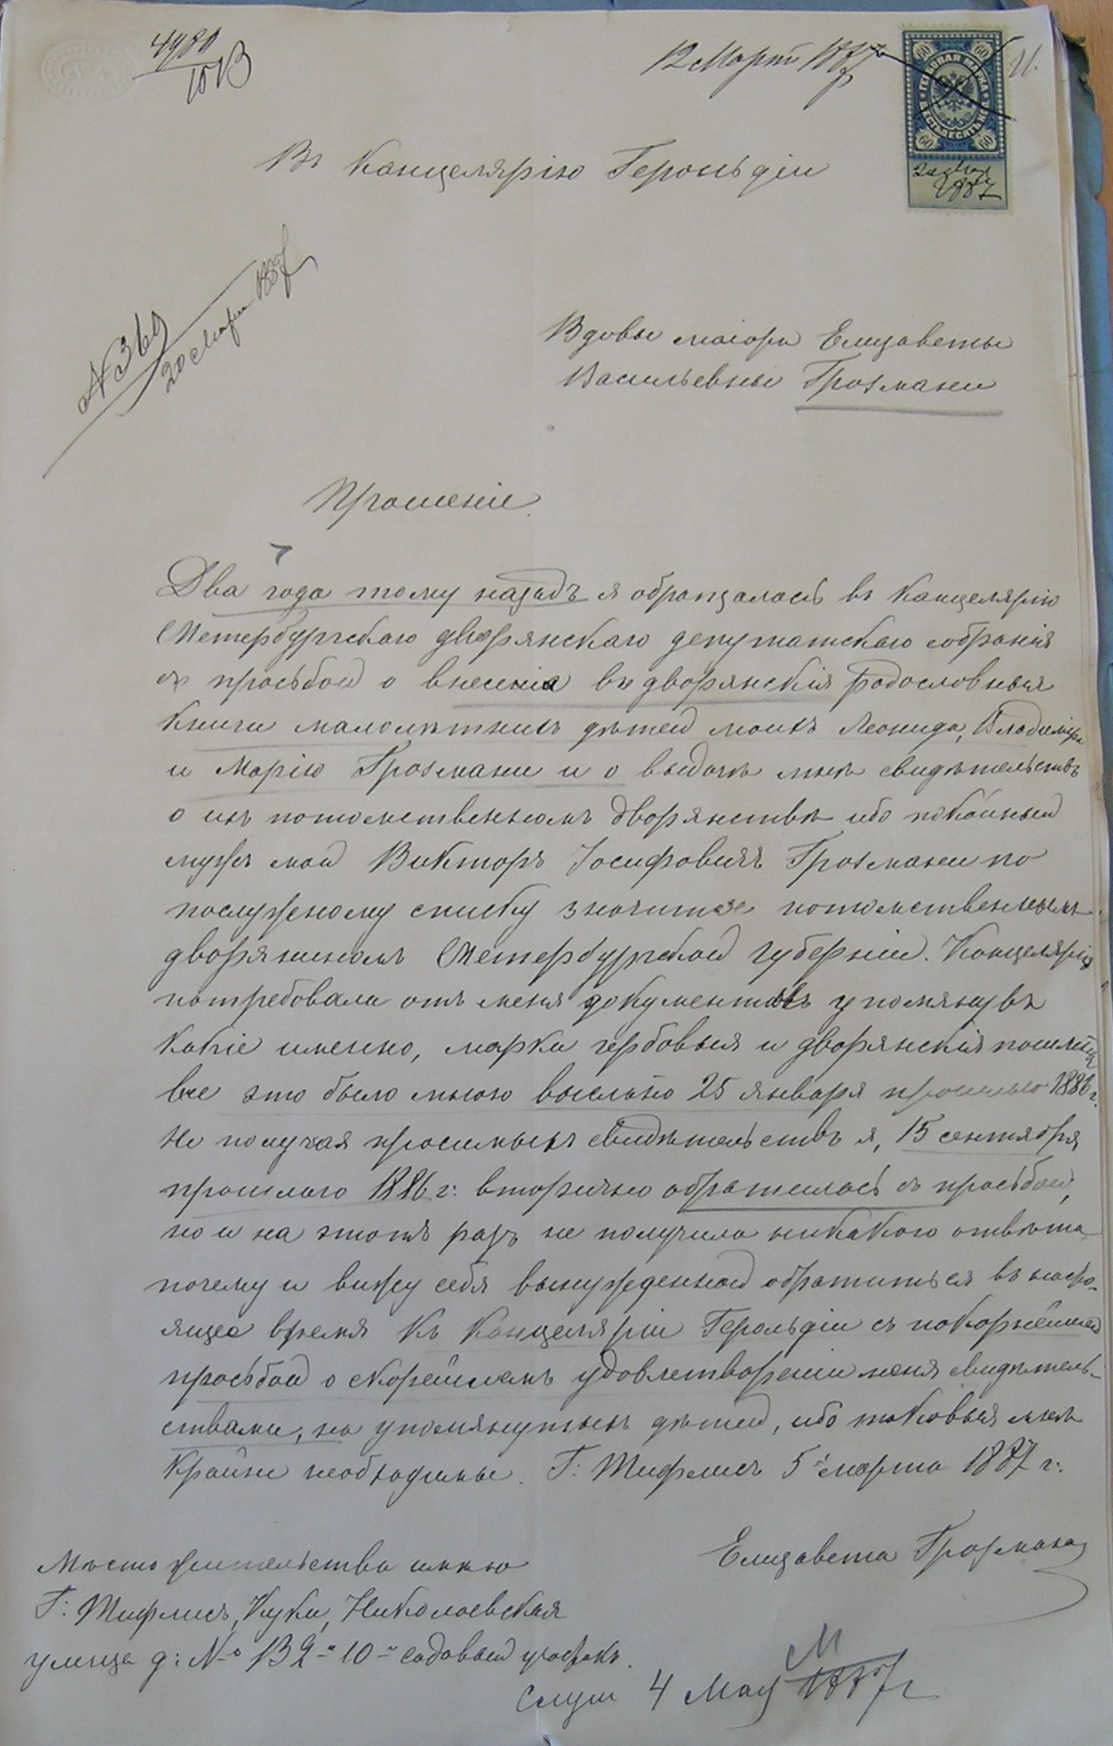 4980
10В
12 Март 1887
60 60
ГЕРБОВАЯ МАРКА
ШЕСТЬДЕСЯТЪ КОП.
60 60
Въ Канцелярію Герольдіи
№ 369
20 Марта 1887
Вдовы маіора Елизаветы
Васильевны Грозмани
Прошеніе.
Два года тому назадъ я обращалась въ Канцелярію
Петербургскаго дворянскаго депутатскаго собранія
съ просьбой о внесеніи въ дворянскія родословныя
книги малолѣтнихъ дѣтей моихъ Леонида, Владиміра
и Марію Грозмани и о выдачѣ мнѣ свидѣтельствъ
о ихъ потомственномъ дворянствѣ ибо покойный
мужъ мой Викторъ Іосифовичъ Грозмани по
послужному списку значится потомственнымъ
дворяниномъ Петербургской губерніи. Канцелярія
потребовала отъ меня документовъ упомянувъ
какіе именно, марки гербовыя и дворянскія пошлины
все это было мною выслано 25 января прошлаго 1886 г.
Не получая просимыхъ свидѣтельствъ я, 15 сентября
прошлаго 1886 г: вторично обратилась съ просьбой,
но и на этотъ разъ не получила никакого отвѣта
почему и вижу себя вынужденной обратиться въ насто-
ящее время къ Канцеляріи Герольдіи съ покорнѣйшей
просьбой о скорѣйшемъ удовлетвореніи меня свидѣтель-
ствами, на упомянутыхъ дѣтей, ибо таковыя мнѣ
крайне необходимы. Г: Тифлисъ 5 марта 1887 г:
Елизавета Грозмани
Мѣсто жительства имѣю
Г: Тифлисъ, Куки, Николаевская
улица д: № 132 10 садовый участокъ.
4 Мая 1887 г